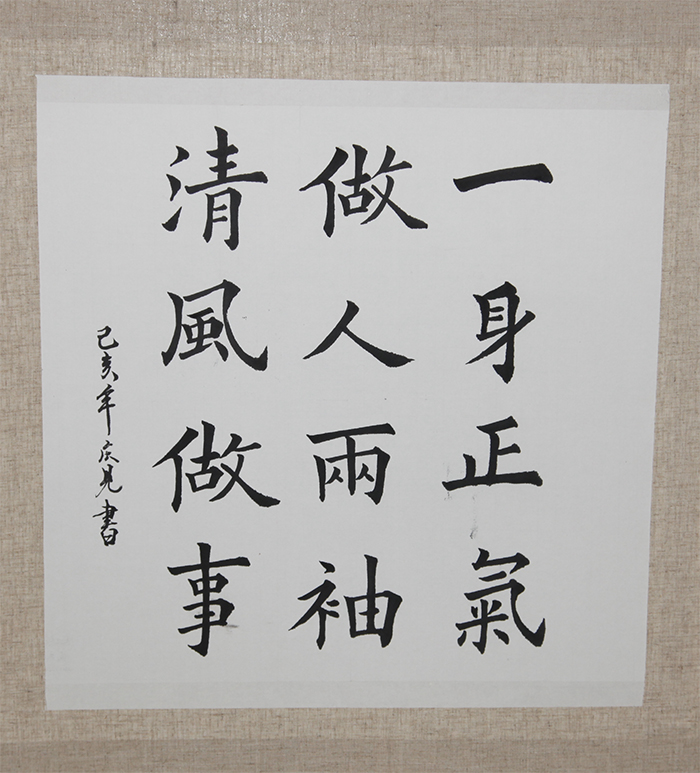 一身正氣
做人兩袖
清風做事
己亥年庆見書